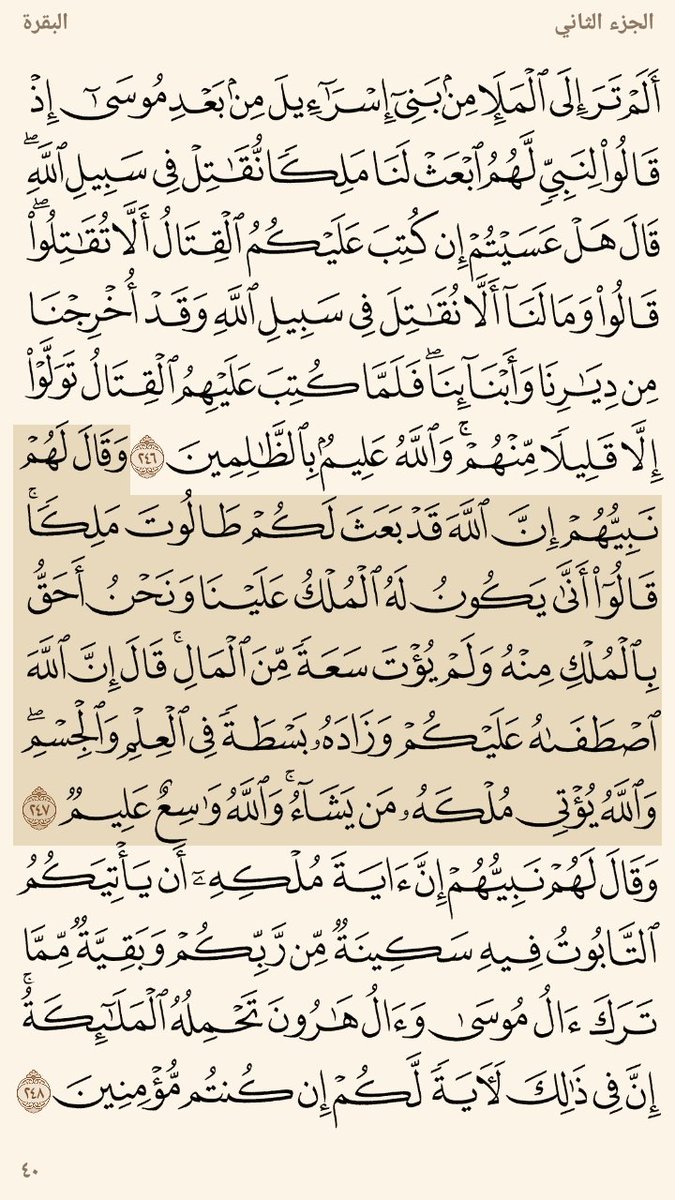 الجزء الثاني
البقرة
أَلَمْ تَرَ إِلَى ٱلْمَلَإِ مِنۢ بَنِىٓ إِسْرَٰٓءِيلَ مِنۢ بَعْدِ مُوسَىٰٓ إِذْ
قَالُوا۟ لِنَبِىٍّ لَّهُمُ ٱبْعَثْ لَنَا مَلِكًا نُّقَٰتِلْ فِى سَبِيلِ ٱللَّهِ ۖ
قَالَ هَلْ عَسَيْتُمْ إِن كُتِبَ عَلَيْكُمُ ٱلْقِتَالُ أَلَّا تُقَٰتِلُوا۟ ۖ
قَالُوا۟ وَمَا لَنَآ أَلَّا نُقَٰتِلَ فِى سَبِيلِ ٱللَّهِ وَقَدْ أُخْرِجْنَا
مِن دِيَٰرِنَا وَأَبْنَآئِنَا ۖ فَلَمَّا كُتِبَ عَلَيْهِمُ ٱلْقِتَالُ تَوَلَّوْا۟
إِلَّا قَلِيلًا مِّنْهُمْ ۗ وَٱللَّهُ عَلِيمٌۢ بِٱلظَّٰلِمِينَ ٢٤٦ وَقَالَ لَهُمْ
نَبِيُّهُمْ إِنَّ ٱللَّهَ قَدْ بَعَثَ لَكُمْ طَالُوتَ مَلِكًا ۚ
قَالُوٓا۟ أَنَّىٰ يَكُونُ لَهُ ٱلْمُلْكُ عَلَيْنَا وَنَحْنُ أَحَقُّ
بِٱلْمُلْكِ مِنْهُ وَلَمْ يُؤْتَ سَعَةً مِّنَ ٱلْمَالِ ۚ قَالَ إِنَّ ٱللَّهَ
ٱصْطَفَىٰهُ عَلَيْكُمْ وَزَادَهُۥ بَسْطَةً فِى ٱلْعِلْمِ وَٱلْجِسْمِ ۖ
وَٱللَّهُ يُؤْتِى مُلْكَهُۥ مَن يَشَآءُ ۚ وَٱللَّهُ وَٰسِعٌ عَلِيمٌ ٢٤٧
وَقَالَ لَهُمْ نَبِيُّهُمْ إِنَّ ءَايَةَ مُلْكِهِۦٓ أَن يَأْتِيَكُمُ
ٱلتَّابُوتُ فِيهِ سَكِينَةٌ مِّن رَّبِّكُمْ وَبَقِيَّةٌ مِّمَّا
تَرَكَ ءَالُ مُوسَىٰ وَءَالُ هَٰرُونَ تَحْمِلُهُ ٱلْمَلَٰٓئِكَةُ ۚ
إِنَّ فِى ذَٰلِكَ لَءَايَةً لَّكُمْ إِن كُنتُم مُّؤْمِنِينَ ٢٤٨
٤٠